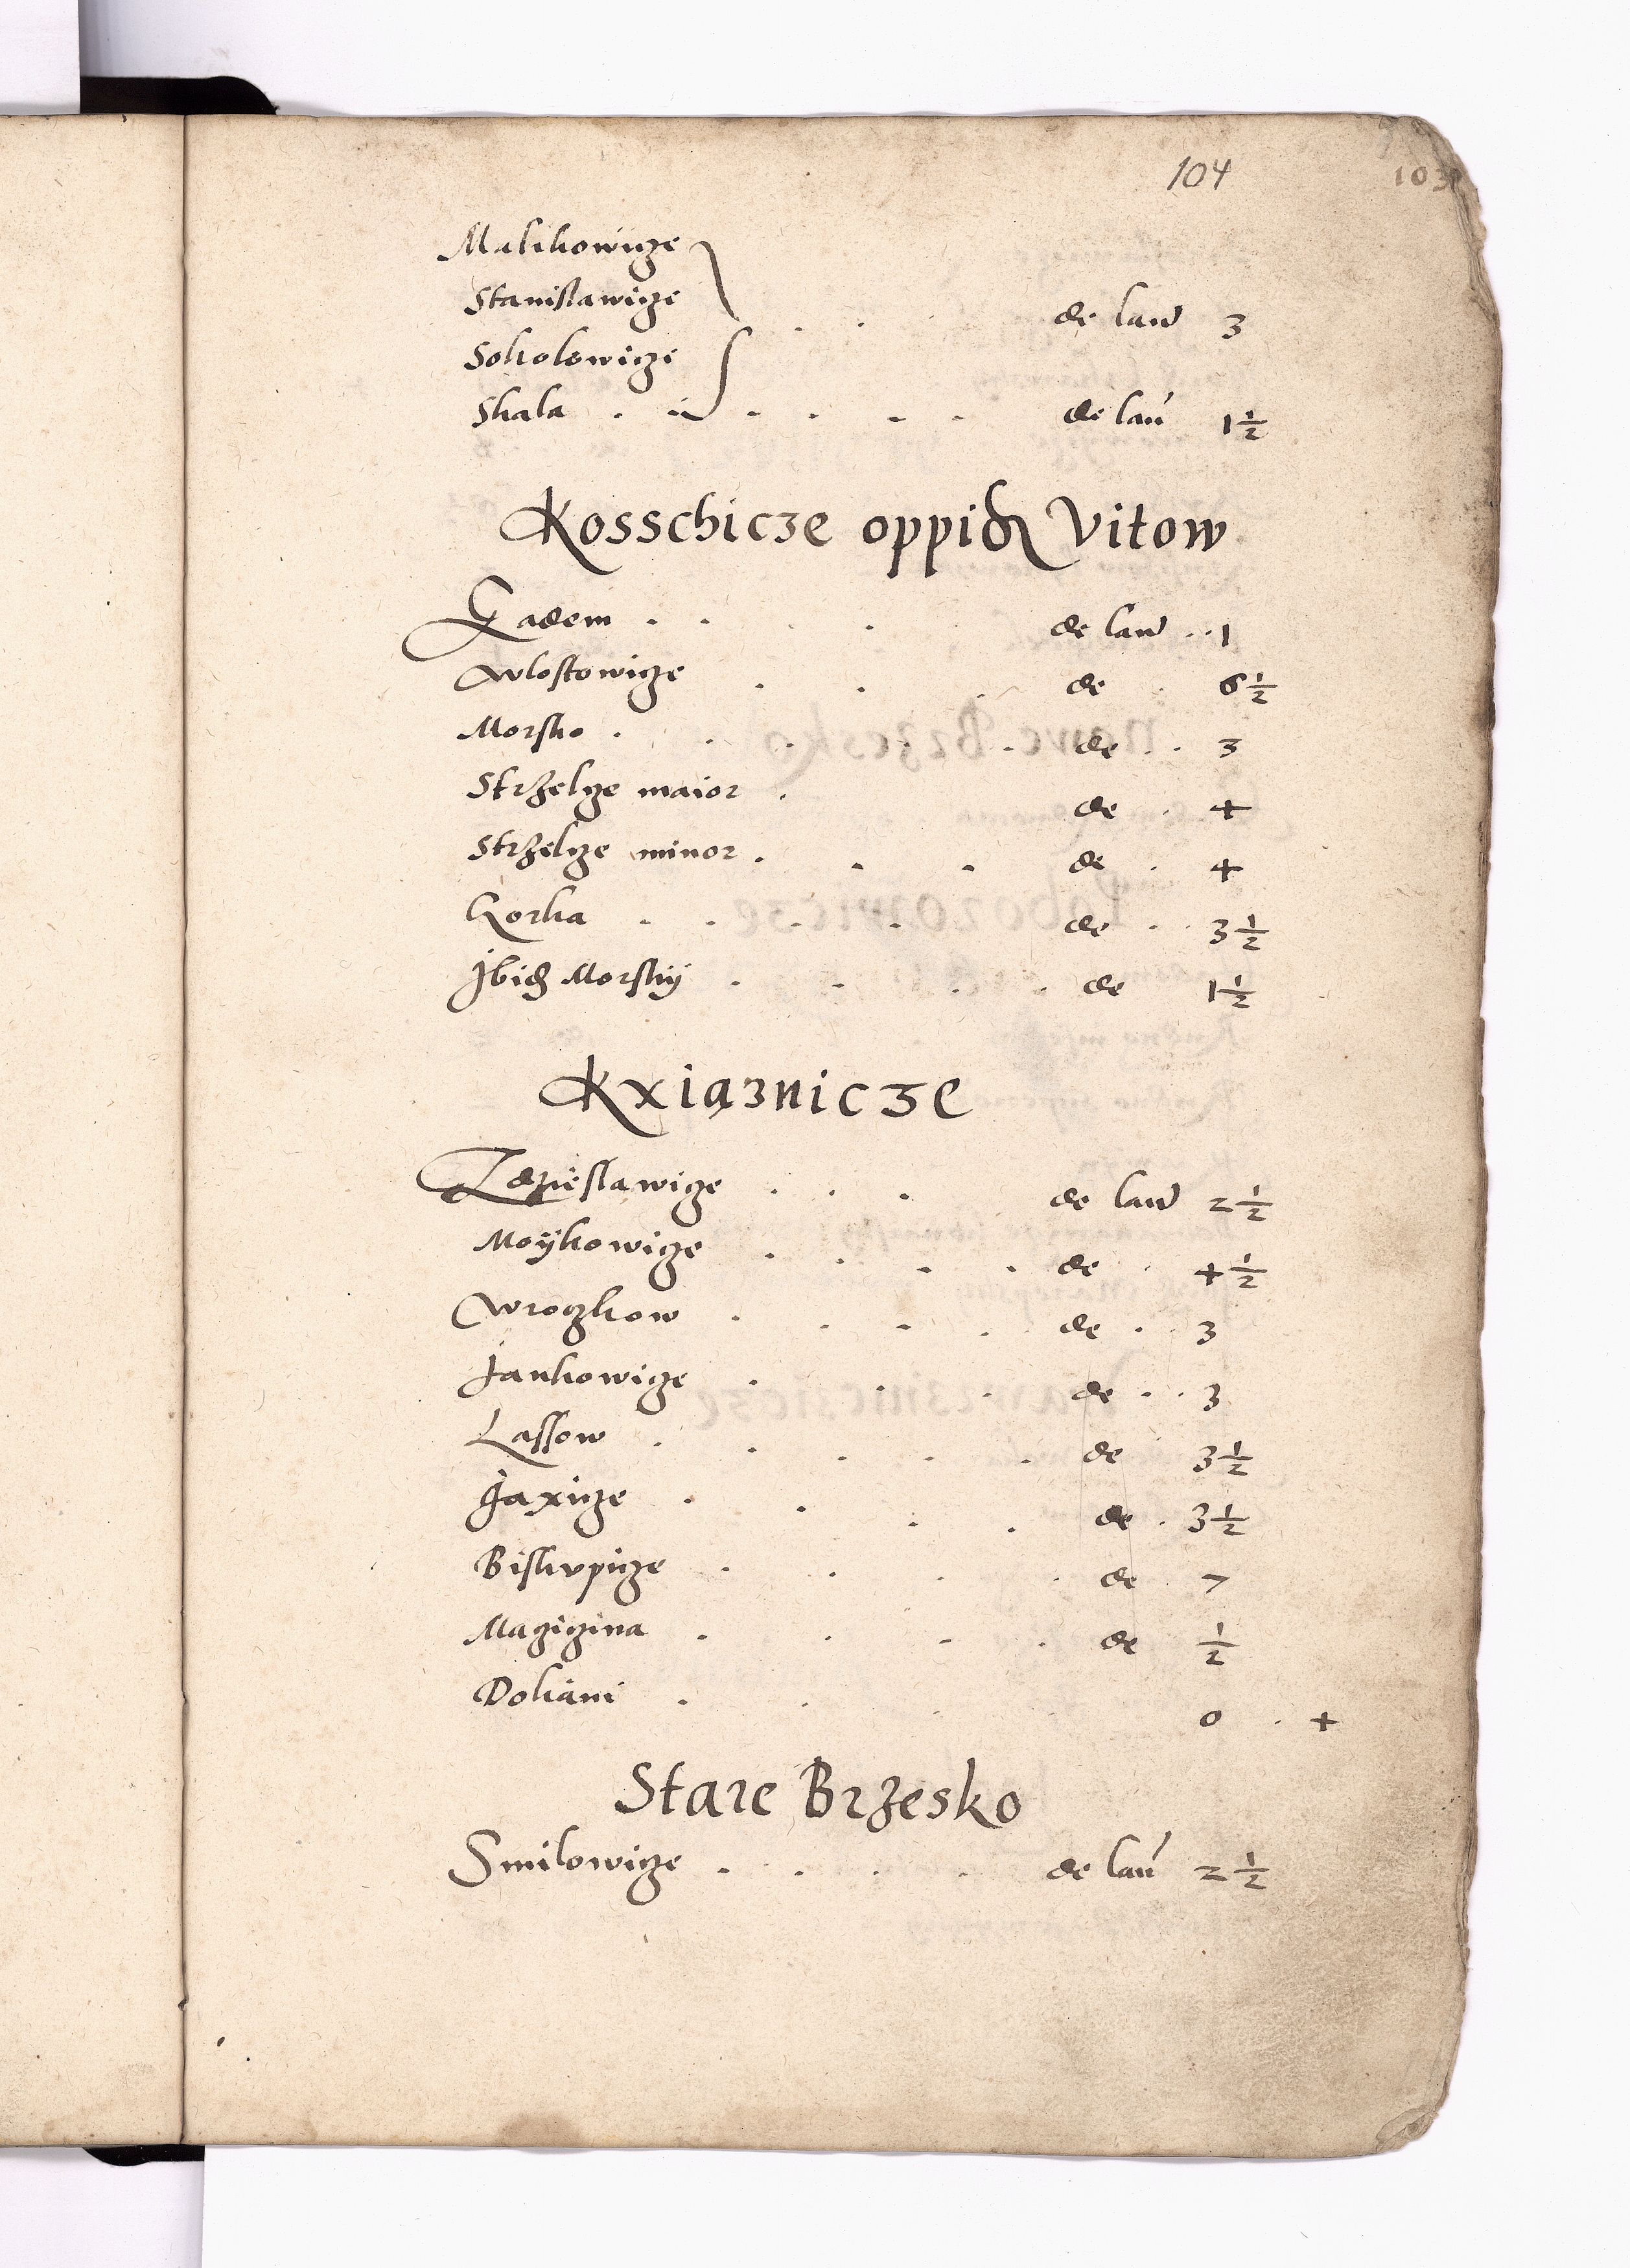 104 103
Malikowicze
Stanislawicze
de lan 3
Sokolowicze
Skala . . . . . . de lan 1 1/2
Kosschicze oppid Vitow
Eadem . . . . de lan . . 1
Wlostowicze . . . de . 6 1/2
Morsko . . . . . de . . 3
Strzelcze maior . de . 4
Strzelcze minor . . . de . 4
Gorka . . . . de . . 3 1/2
Ibid Morskÿ . . . . de 1 1/2
Kxiąznicze
Zdzieslawicze . . . de lan 2 1/2
Moÿkowicze . . . . de . 4 1/2
Wroczkow . . . . de . . 3
Jankowicze . . . de . . 3
Lassow . . . . . de 3 1/2
Jaxicze . . . . de . 3 1/2
Biskupicze . . . . de . 7
Macziczina . . . . de 1/2
Dokani . . . 0 . +
Stare Brzesko
Smilowicze . . . . de lan 2 1/2